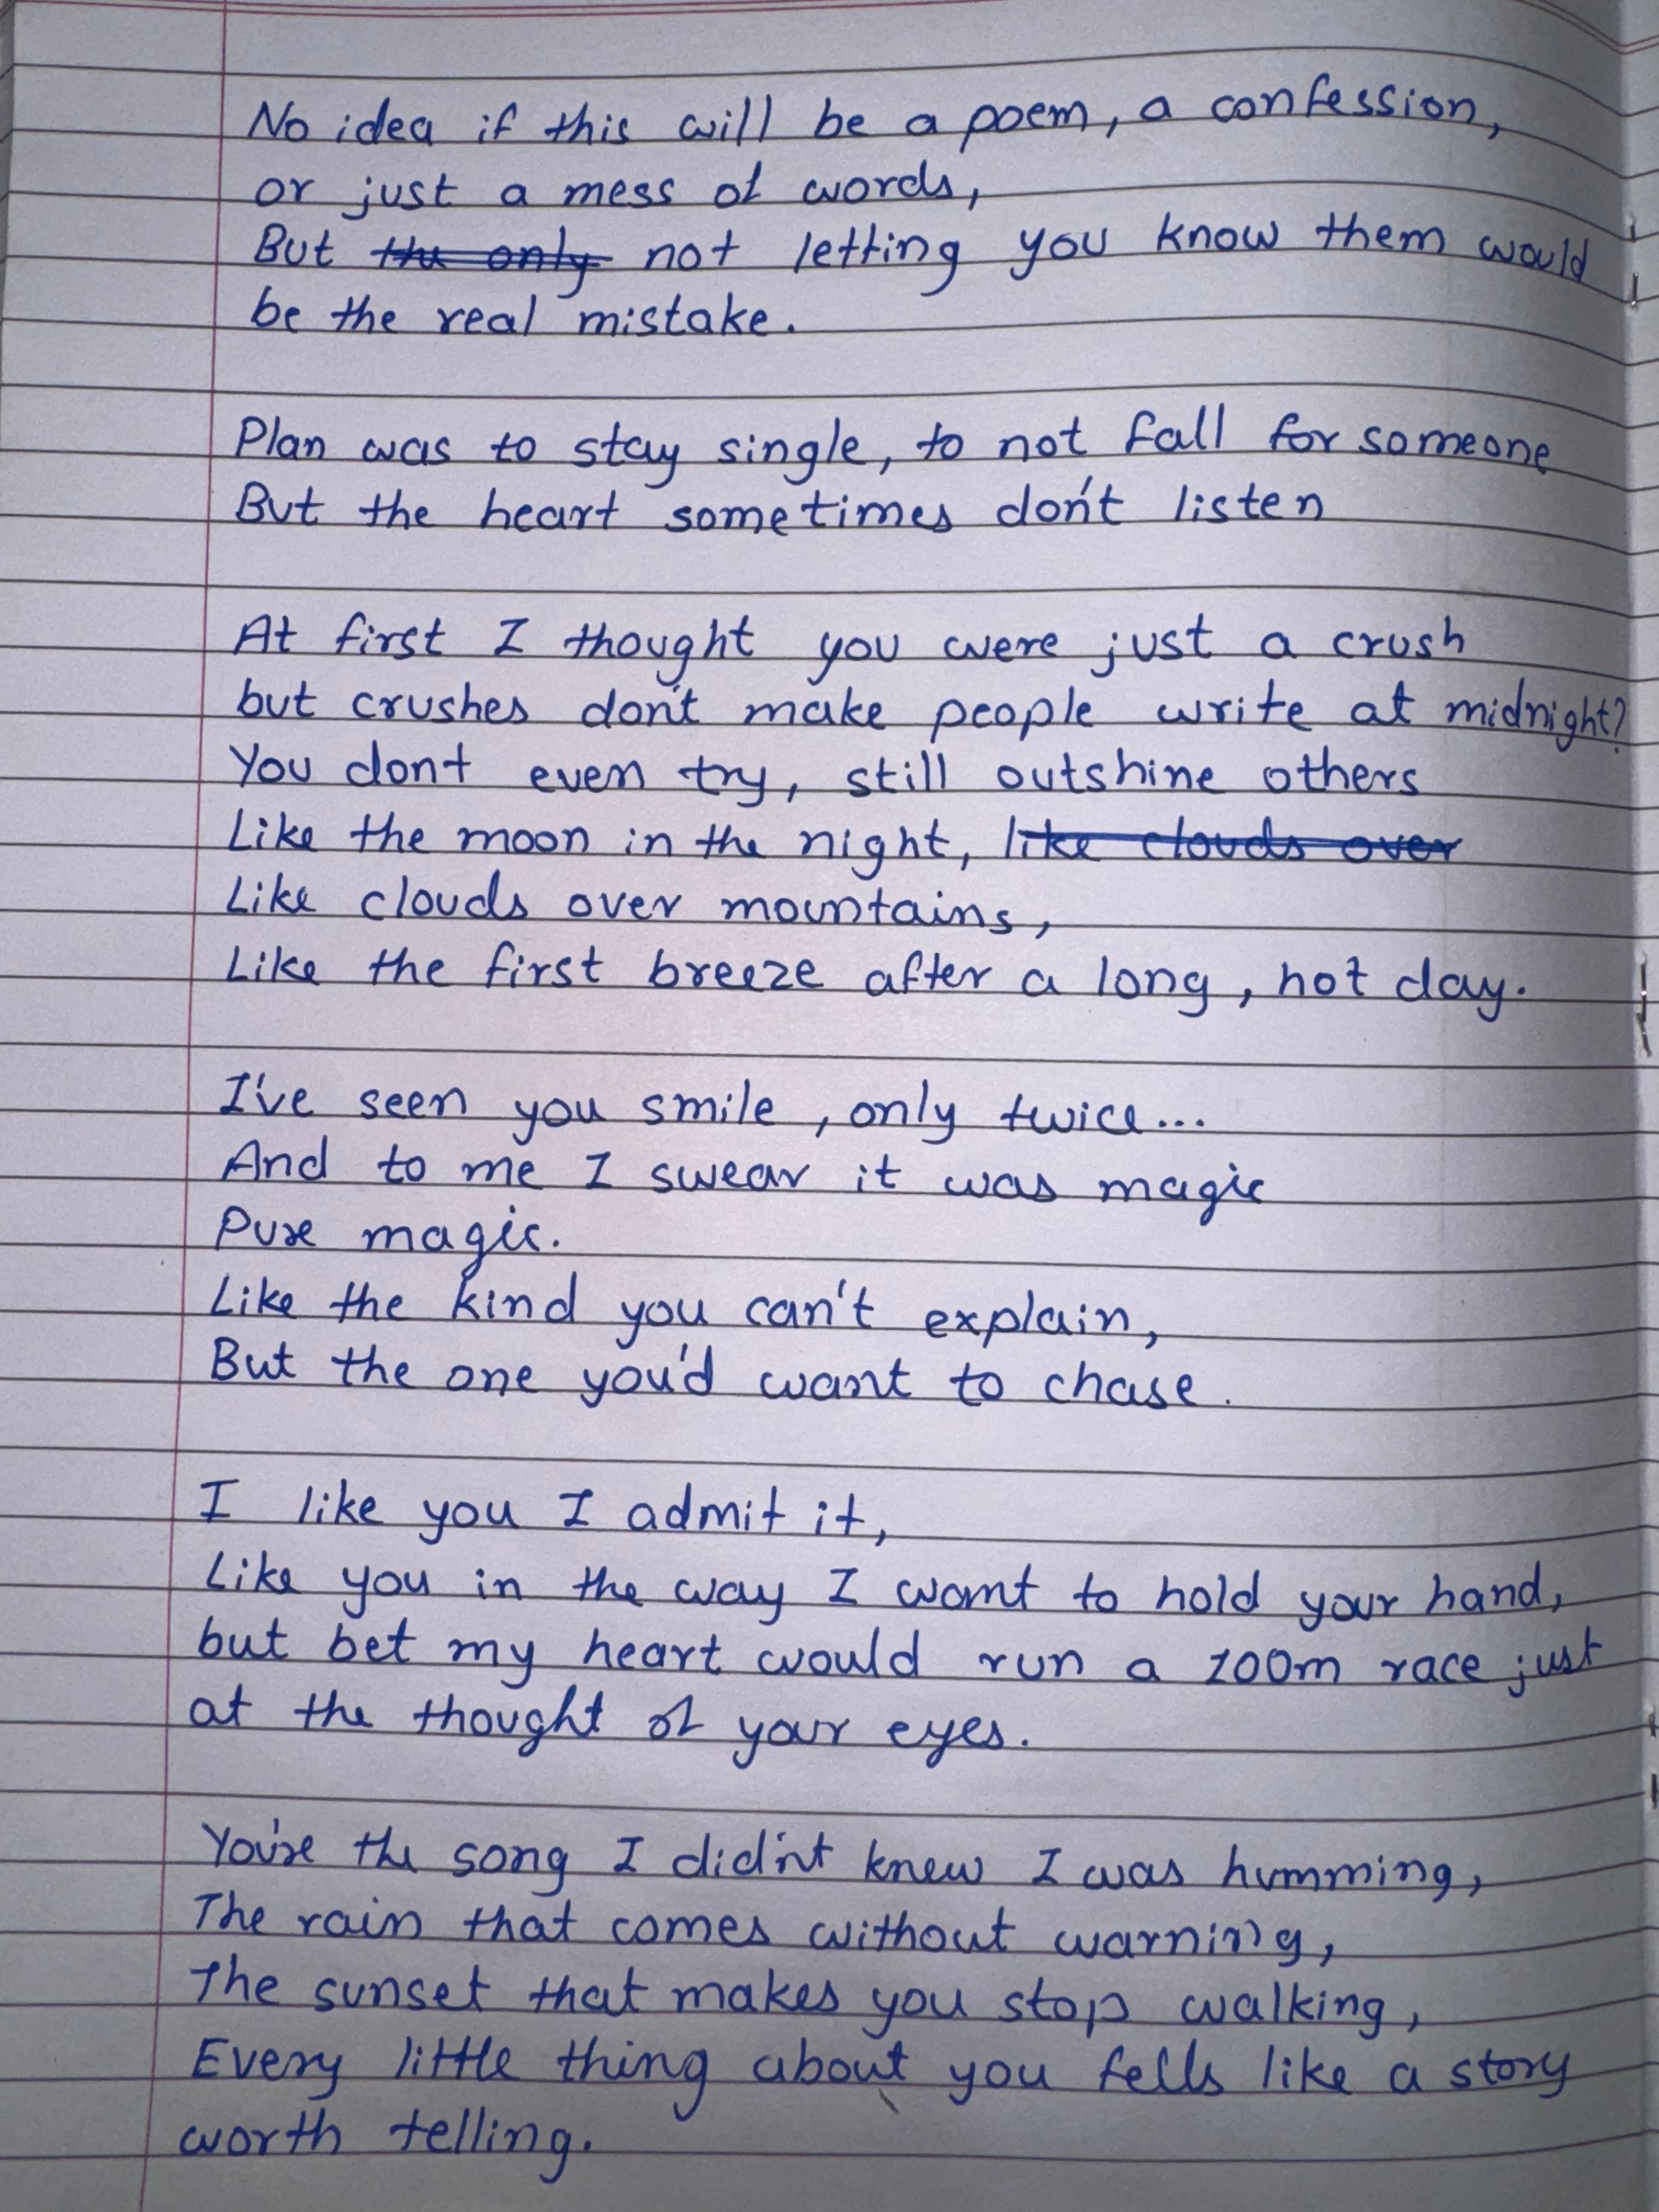 No idea if this will be a poem, a confession,
or just a mess of words,
But the only not letting you know them would
be the real mistake.
Plan was to stay single, to not fall for someone
But the heart sometimes don't listen
At first I thought you were just a crush
but crushes don't make people write at midnight?
You dont even try, still outshine others
Like the moon in the night, like clouds over
Like clouds over mountains,
Like the first breeze after a long, hot day.
I've seen you smile, only twice...
And to me I swear it was magic
Pure magic.
Like the kind you can't explain,
But the one you'd want to chase.
I like you I admit it,
Like you in the way I want to hold your hand,
but bet my heart would run a 100m race just
at the thought of your eyes.
You're the song I did'nt knew I was humming,
The rain that comes without warning,
The sunset that makes you stop walking,
Every little thing about you fells like a story
worth telling.